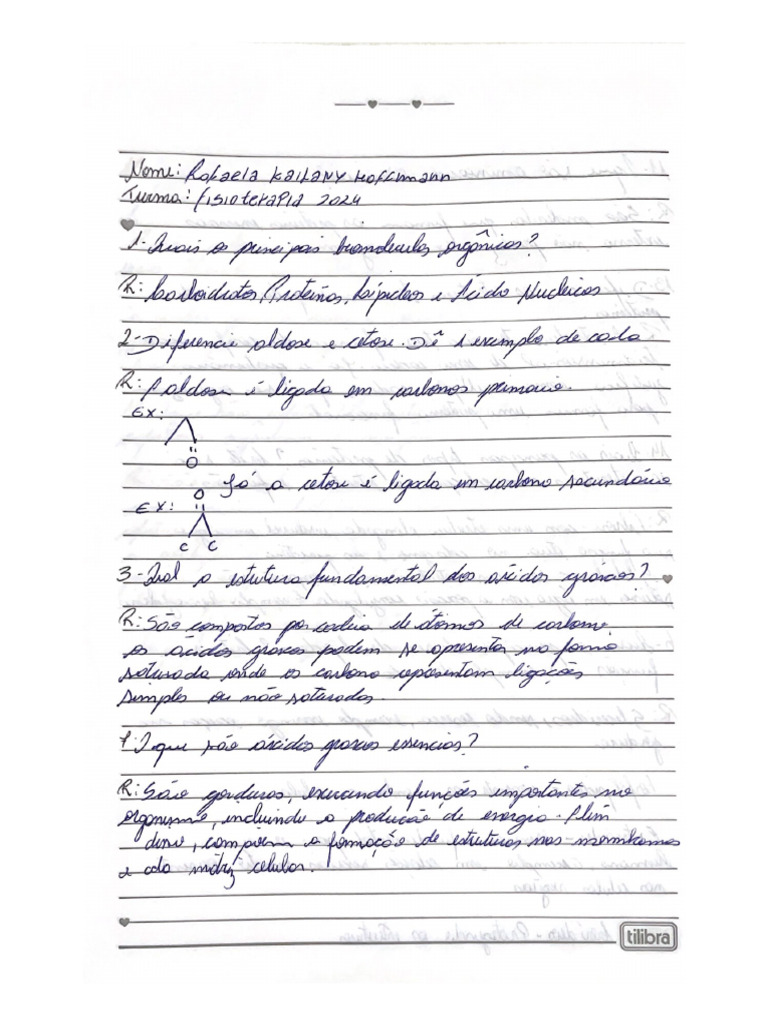 Nome: Rafaela Kailany Hoffmann
Turma: Fisioterapia 2024
1- Quais os principais biomoleculas orgânicas?
R: Carboidratos, Proteínas, Lípideos e Ácido Nucleicos
2- Diferencie aldose e cetose. Dê 1 exemplo de cada
R: A aldose é ligada em carbonos primario.
EX:
O
Já a cetose é ligada em carbono secundário
O
EX:
C C
3- Qual a estrutura fundamental dos ácidos graxos?
R: São compostos por cadeia de átomos de carbono,
os ácidos graxos podem se apresentar na forma
saturada onde os carbono representam ligações
simples ou não saturados.
O que são ácidos graxos essencias?
R: São gorduras, exercendo funções importantes no
organismo, incluindo a produção de energia. Além
disso, compõem a formação de estruturas nas membranas
e da matriz celular.
tilibra